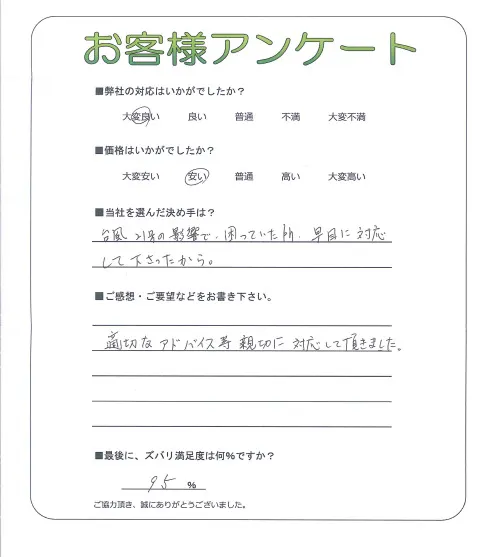 お客様アンケート
■弊社の対応はいかがでしたか？
大変良い 良い 普通 不満 大変不満
■価格はいかがでしたか？
大変安い 安い 普通 高い 大変高い
■当社を選んだ決め手は？
台風21号の影響で、困っていた所、早目に対応
して下さったから。
■ご感想・ご要望などをお書き下さい。
適切なアドバイス等親切に対応して頂きました。
■最後に、ズバリ満足度は何％ですか？
95 ％
ご協力頂き、誠にありがとうございました。